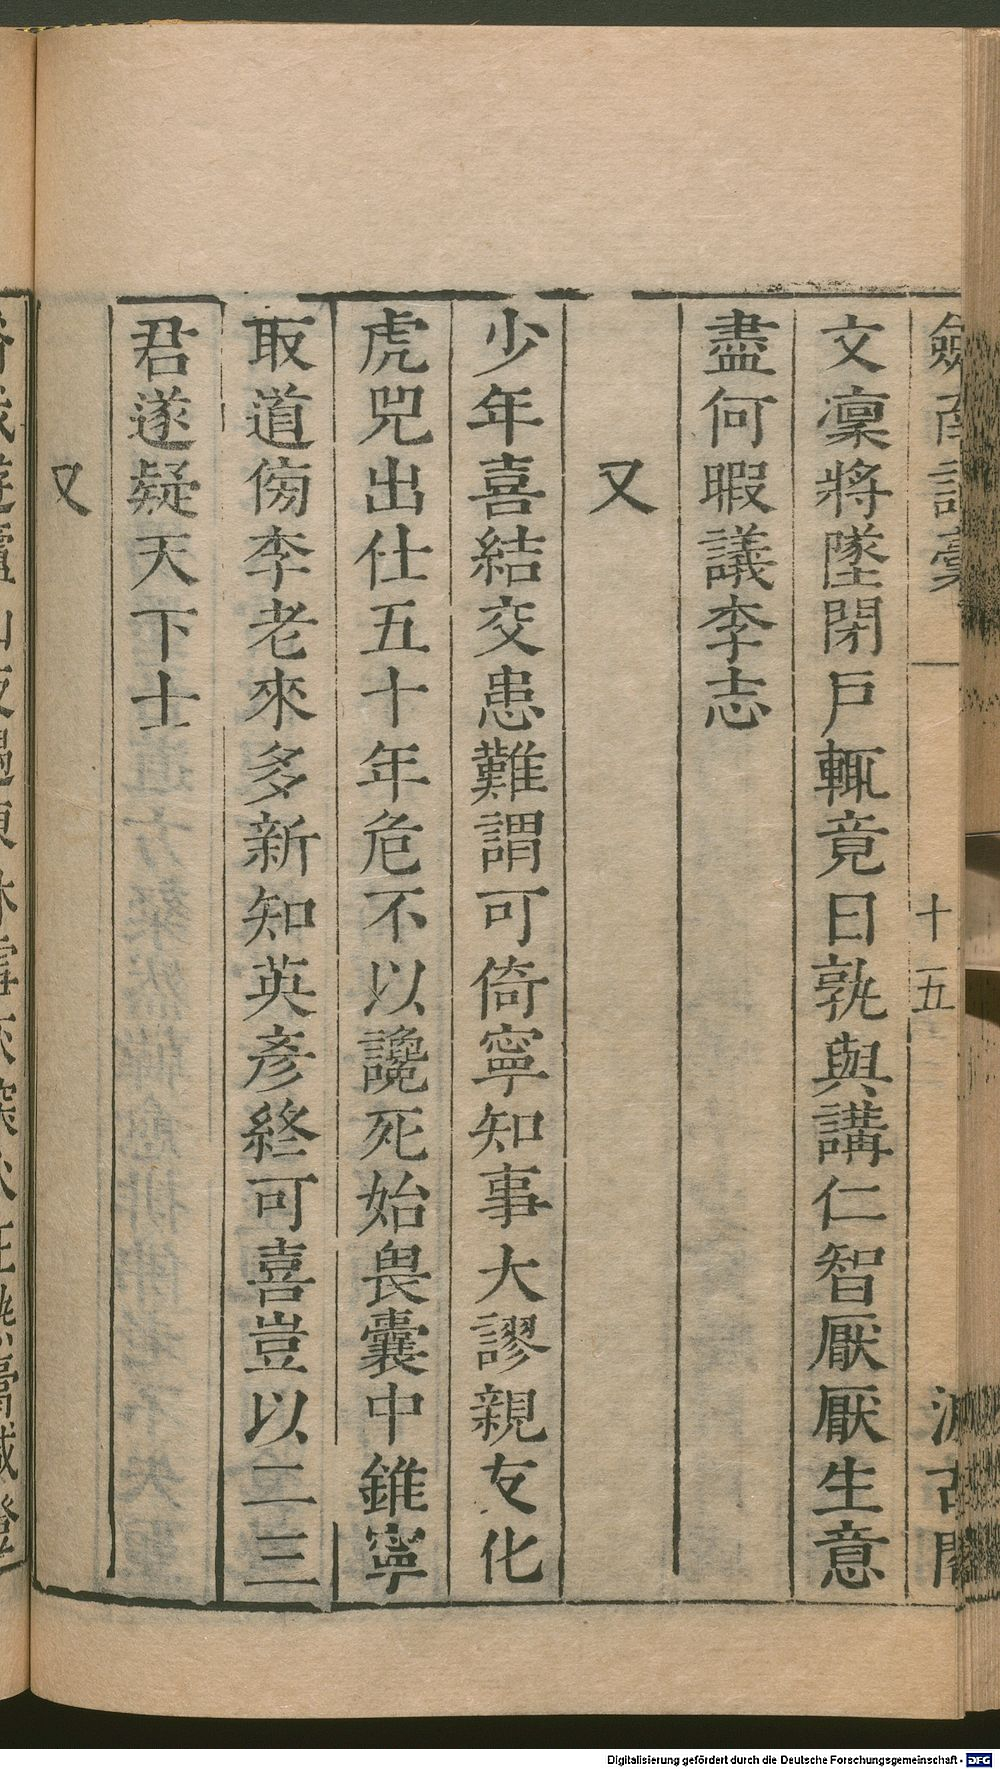 劒南詩稾
十五
汲古閣
文凜將墜閉戶輒竟日孰與講仁智厭厭生意
盡何暇議李志
又
少年喜結交患難謂可倚寧知事大謬親友化
虎兕出仕五十年危不以讒死始畏囊中錐寧
取道傍李老來多新知英彥終可喜豈以二三
君遂疑天下士
又
Digitalisierung gefördert durch die Deutsche Forschungsgemeinschaft - DFG